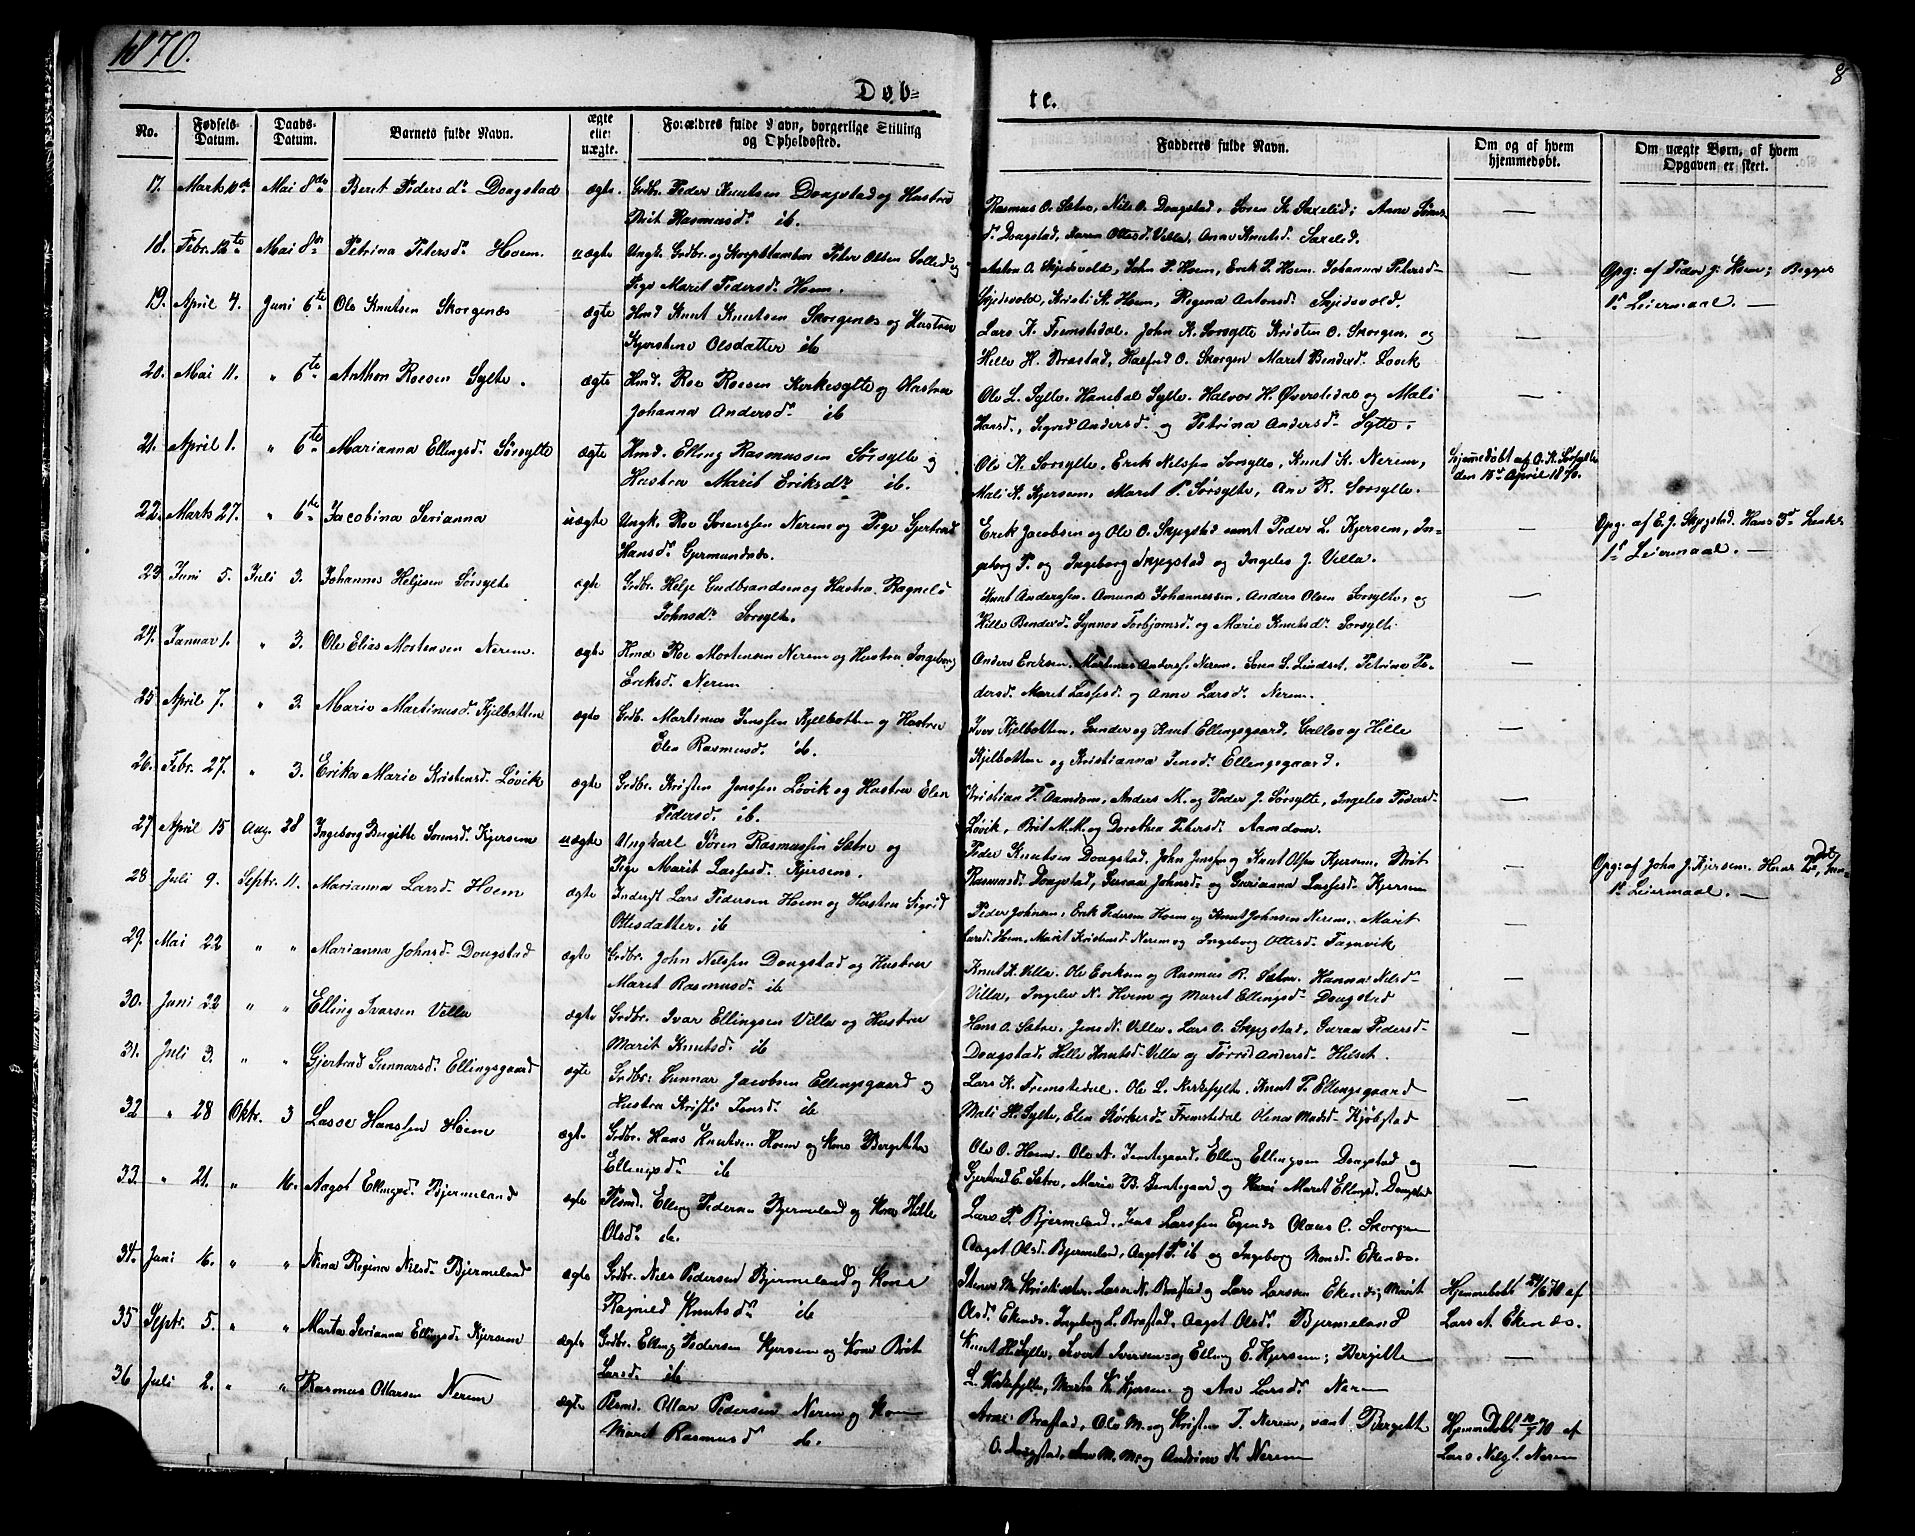 1870.
8
Døb=
te.
No.
Fødsels-
Datum.
Daabs-
Datum.
Barnets fulde Navn.
ægte
eller
uægte.
Forældres fulde Navn, borgerlige Stilling
og Opholdssted.
Faddernes fulde Navn.
Om og af hvem
hjemmedøbt.
Om uægte Børn, af hvem
Opgaven er skeet.
17. Marts 10de Mai 8de Beret Pedersdr Dougstad ægte. Grdbr. Peder Knutsen Dougstad og Hustru
Brit Rasmusdr ib.
Rasmus O. Sætre, Nils O. Dougstad, Søren K. Saxelid; Anne Sørens
dr Dougstad, Karen Ottesd. Villa, Anne Knutsd. Saxelid.
18. Febr. 12te Mai 8de Petrina Petersdr Hoem. uægte Ungk. Grdbr. og Peter Olsen Solled og
Pige Marit Pedersdr Hoem.
Anton O. Skjedsvold, John P. Hoem, Erik P. Hoem. Johanna Petersd-
Skjedsvold, Kristi K. Hoem, Regina Antonsd. Skjedsvold.
Opg: af Peder J. Hoem; Begges
1st Leiermaal. —
19. April 4. Juni 6te Ole Knutsen Skorgenæs ægte Hmd Knut Knutsen Skorgenæs og Hustru
Kjerstine Olsdatter ib
Lars K. Fremstedal. John K. Sorsylte Kristen O. Skorgen. og
Hille H. Brastad, Halfrid O. Skorgen Maret Bendersd. Lovik
20. Mai 11. " 6te Anthon Roesen Sylte. ægte Hmd. Roe Roesen Kirkesylte og Hustru
Johanna Andersdr ib
Ole L. Sylte. Hanibal Sylte. Halvor H. Øverstedal og Mali
Hansd., Sigrid Andersd. og Petrina Andersdr Sylte.
21. April 1. " 6te Marianna Ellingsdr Sørsylte ægte Hmd. Elling Rasmussen Sørsylte og
Hustru Marit Eriksdr ib.
Ole K. Sorsylte. Erik Nilssen Sorsylte, Knut K. Nerem,
Mali K. Kjersem, Maret P. Sørsylte, Ane R. Sorsylte.
Hjemmedøbt af O. K. Sørsylte
den 15de April 1870.
22. Marts 27. " 6te Jacobina Serianna uægte Ungk. Roe Sørenssen Nerem og Pige Gjertrud
Hansdr Gjermundnæs.
Erik Jacobsen og Ole O. Skjegstad samt Peder L. Kjersem, In-
geborg P. og Ingeborg Skjegstad og Ingeleo J. Villa.
Opg. af E. J. Skjegstad. Hans 3dt
1st Leiermaal. —
23. Juni 5. Juli 3. Johannes Heljesen Sørsylte ægte Grdbr. Helje Gudbrandsen og Hustru Ragneld
Johnsdr Sorsylte.
Knut Anderssen. Amund Johannessen, Anders Olsen Sorsylte, og
Hille Bendersd. Synnøv Torbjørnsd. og Marie Knutsdr Sorsylte
24. Januar 1. " 3. Ole Elias Mortensen Nerem. ægte Hmd Roe Mortensen Nerem og Hustru Ingeborg
Eriksdr Nerem
Anders Eriksen. Martinus Anders. Nerem. Soren S. Lindset, Petrina Pe-
dersd. Maret Lassesd. og Anne Larsdr Nerem.
25. April 7. " 3. Marie Martinusdr Kjelbotten ægte Grdb. Martinus Jenssen Kjelbotten og Hustru
Elen Rasmusdr ib.
Iver Kjelbotten, Gunder og Knut Ellingsgaard, og Hille
Kjelbotten og Kristianna Jensdr Ellingsgaard.
26. Febr. 27. " 3. Erika Marie Kristensdr Løvik ægte Grdbr. Kristen Jenssen Løvik og Hustru Elen
Pedersdr ib.
Kristian P. Aamdom, Anders M. og Peder J. Sørsylte, Ingeleo Pedersd-
Løvik, Brit M. M. og Dorothea Petersdr Aamdom.
27 April 15 Aug. 28 Ingeborg Bergitte Sørensdr Kjersem uægte Ungkarl Søren Rasmussen Sætre og
Pige Marit Lassesdr Kjersem.
Peder Knutsen Dougstad, John Jenssen og Knut Olsen Kjersem, Brit
Rasmusdr Dougstad, Guraa Johnsdr og Gurianna Lassesdr Kjersem
Opg: af John J. Kjersem. Hans 2det,
1st Leiermaal. —
28 Juli 9. Septr. 11. Marianna Larsdr Hoem ægte Inderst Lars Pedersen Hoem og Hustru Sigrid
Ottesdatter. ib
Peder Johnsen, Erik Pedersen Hoem og Knut Johnsen Nerem. Marit
Larsd. Hoem, Marit Kristensd. Nerem og Ingeborg Ottersdr Tagnvik
29. Mai 22 " " Marianna Johnsdr Dougstad ægte Grdbr. John Nelssen Dougstad og Hustru
Maret Rasmusdr ib
Knut K. Villa. Ole Eriksen og Rasmus R. Sætre. Hanna Nilsd-
Villa, Ingeleo N. Hoem og Maret Ellingsdr Dougstad
30. Juni 22 " " Elling Ivarsen Villa ægte Grdbr. Ivar Ellingsen Villa og Hustru
Marit Knutsdr ib
Hans O. Sætre. Jens N. Villa. Lars O. Skjegstad, Guraa Pedersd-
Dougstad. Hille Knutsdr Villa og Andersdr Hilset.
31. Juli 3. " " Gjertrud Gunnarsdr Ellingsgaard ægte Grdbr: Gunnar Jacobsen Ellingsgaard og
Hustru Kristi Jensdr ib
Lars K. Fremstedal. Ole L. Kirkesylte. Knut P. Ellingsgaard
Mali H. Sylte, Elen Størkersdr Fremstedal Olena Madsdr Kjøbstad
32 " 28 Oktr. 3 Lasse Hanssen Hoem ægte Grdbr. Hans Knutsen Hoem og Kone Bergitthe
Ellingsdr ib
Ole O. Hoem. Ole A. Jemtegaard. Elling Ellingsen Dougstad og
Gjertrud E. Sætre, Marie B. Jemtegaard og Maret Ellingsd. Dougstad
33. " 21. " 16. Aagot Ellingsdr Bjermeland ægte Plsmd. Elling Pedersen Bjermeland og Kone Hille
Olsdr ib.
Lars P. Bjermeland. Jens Larssen Olaus C. Skorgen
Aagot Olsdr Bjermeland, Aagot P. ib og Ingeborg Monsdr Ekenæs.
34. Juni 16. " " Nina Regina Nilsdr Bjermeland ægte Grdbr. Nils Pedersen Bjermeland og Kone
Ragnild Knutsdr ib
M. Kristiseter. Lasse N. Brastad og Lars Larssen Ekenæs; Marit
Olsdr Ekenæs. Ingeborg L. Brastad, Aagot Olsdr Bjermeland
Hjemmedøbt 29/6 70 af
Lars A. Ekenæs.
35 Septr. 5. " " Marta Serianna Ellingsdr Kjersem ægte Grdbr. Elling Pedersen Kjersem og Kone Brit
Larsdr ib
Knut H. Sylte, Sivert Iversen og Elling E. Kjersem; Bergitte
L. Kirkesylte, Marta K. Kjersem og Ane Larsdr Nerem
36 Juli 2. " " Rasmus Ottarsen Nerem ægte Plsmd. Ottar Pedersen Nerem og Kone
Marit Rasmusdr ib.
Arne Brastad, Ole M. og Kristen T. Nerem, samt Bergitte
O. Dougstad, Ane M. M. og Andrine N. Nerem
Hjemmedøbt 10/7 70 af
Lars Nils. Nerem